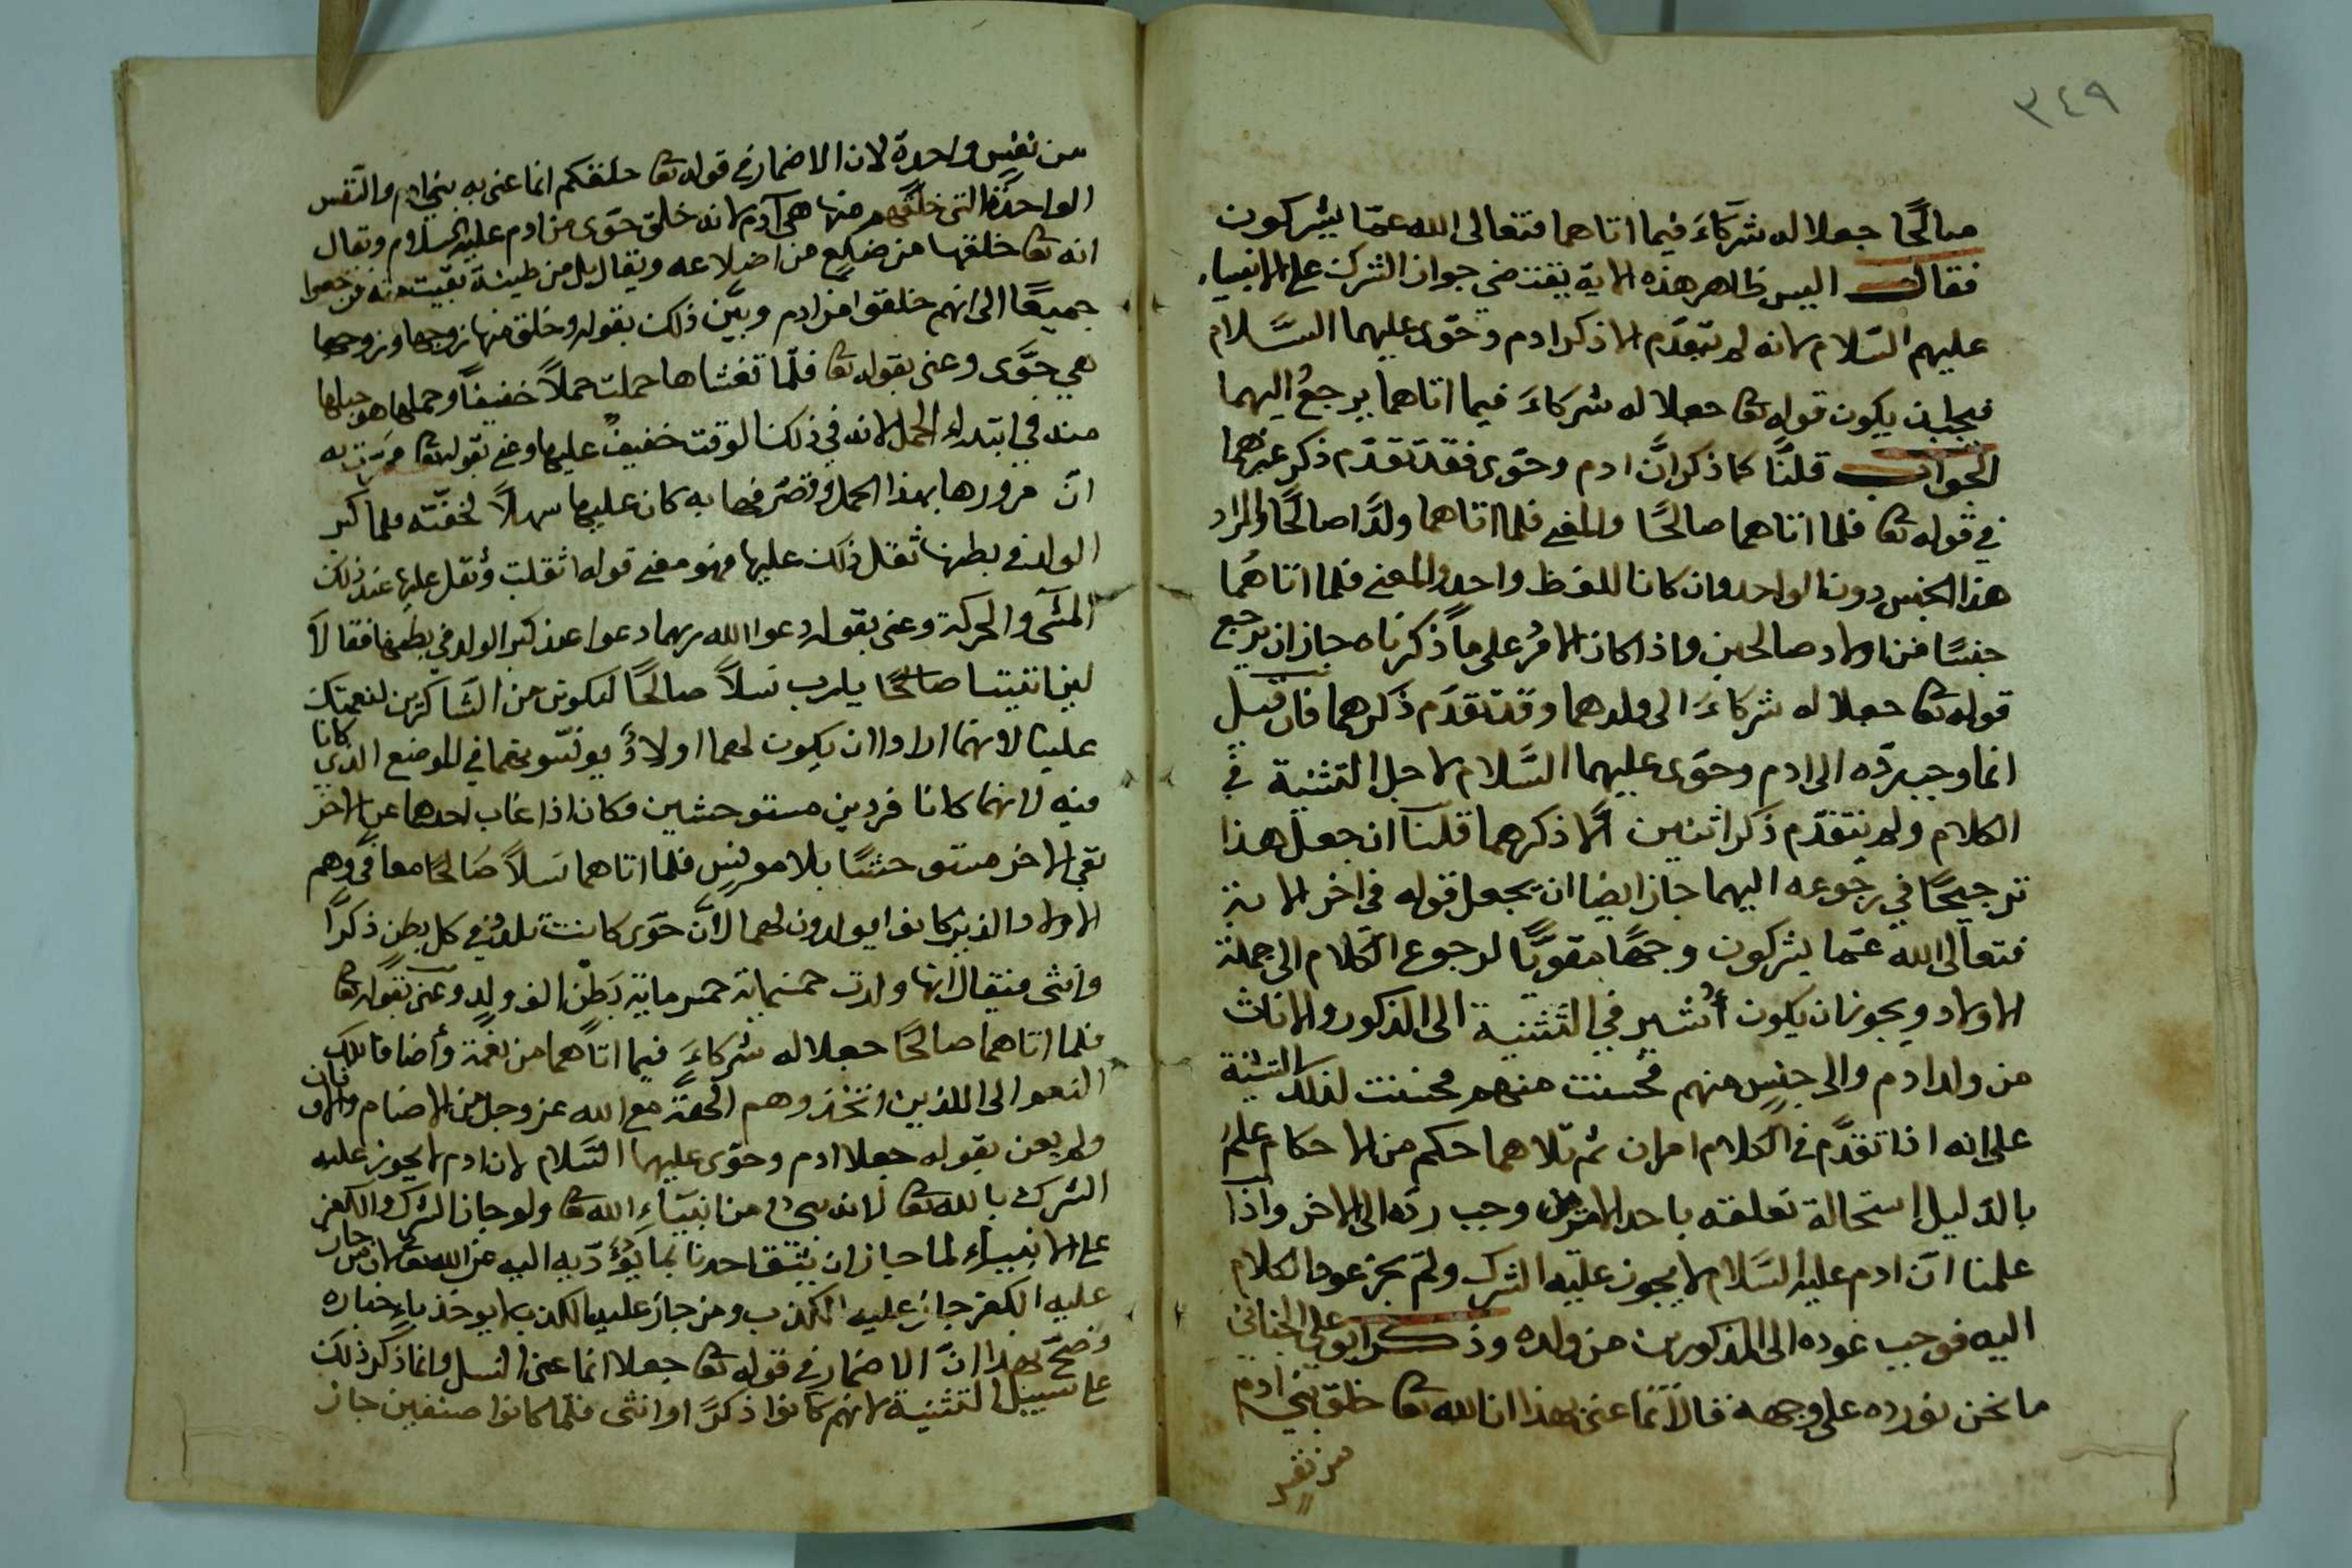 ٣٤٩
صالحًا جعلا له شركاءَ فيما اتاهما فتعالى الله عمّا يشركون
فقال اليس ظاهر هذه الاية يقتضي جواز الشرك على الانبياء
عليهم السّلام لانه لم يتقدّم الا ذكر ادم وحوّى عليهما السَّلام
فيجب ان يكون قوله تعا جعلا له شركاءَ فيما اتاهما يرجعُ اليهما
الجواب قلنَّا كما ذكر انَّ ادم وحوّى فقد تقدّم ذكر غيرهما
في قوله تعا فلما اتاهما صالحًا والمعنى فلما اتاهما ولدًا صالحًا والمراد
هذا الجنس دون الواحد وان كان اللفظ واحد والمعنى فلما اتاهُما
جنسًا من اولاد صالحين واذا كان الامرُ على ماً ذكرناه جاز ان يرجع
قوله تعا جعلا له شركاءَ الى ولدهما وقد تقدَم ذكرهما فان قيل
انما وجب ردّه الى ادم وحوّى عليهما السَّلام لاجل التثنية في
الكلام ولم يتقدّم ذكر اثنين الّا ذكرهما قلنا ان جعل هذا
ترجيحًا في رجوعه اليهما جاز ايضا ان يجعل قوله في اخر الاية
فتعالى الله عمّا يشركون وجهًا مقويًّا لرجوع الكلام الى جملة
الاولاد ويجوز ان يكون أُشير في التثنية الى الذكور والاناث
من ولد ادم والى جنسٍ منهم فحسنت منهم فحسنت لذلك التثنية
على انه اذا تقدَّم في الكلام امران ثم تلاهما حكم من الاحكام علم
بالدليل استحالة تعلقه باحد الامرين وجب ردّه الى الاخر واذا
علمنا انّ ادم عليه السَّلام لا يجوز عليه الشرك ولم يجز عود الكلام
اليه فوجب عوده الى المذكورين من ولده وذكر ابو على الجبائي
ما نحن نورده على وجهه قال انما عنى بهذا ان الله تعا خلق بني ادم
من نفس
من نفسٍ واحدة لان الاضمار في قوله تعا خلقكم انما عنى به بني ادم والنّفس
الواحدة التى خلقهم منها هى آدم لانه خلق حوّى من ادم عليه السَّلام ويقال
انه تعا خلقها من ضلعٍ من اضلاعه ويقال بل من طينة بقيت منه فرجعوا
جميعًا الى انهم خلقوا من ادم وبيَّن ذلك بقوله وخلق منها زوجها وزوجها
هي حوَّى وعنى بقوله تعا فلّما تغشاها حملت حملاً خفيفًا وحملها هو حبلها
منه في ابتداء الحمل لانه في ذلك الوقت خفيفٌ عليها وعنى بقوله تعا فمرّت به
انّ مرورها بهذا الحمل وتصرفها به كان عليها سهلاً لخفّته فلما كبر
الولد في بطنها ثقل ذلك عليها فهو معنى قوله اثقلت وثقل عليها عند ذلك
المشى والحركة وعنى بقوله دعوا الله ربهما دعوا عند كبر الولد في بطنها فقالاَ
لين اتيتنا صالحًا يا رب نسلاً صالحًا لنكونن من الشاكرين لنعمتك
علينا لانهما ارادا ان يكون لهما اولادٌ يونسونهما في الموضع الذي كانا
فيه لانهما كانا فردين مستوحشين فكان اذا غاب احدهما عن الاخر
بقي الاخر مستوحشًا بلا مونس فلما اتاهما نسلاً صَالحًا معافى وهم
الاولاد الذين كانوا يولدون لهما لانَّ حوَى كانت تلد في كل بطنٍ ذكرًا
وانثى فيقال انها ولدت خمسماية خمسماية بَطنٍ الف ولدٍ وعنى بقوله تعا
فلما اتاهما صالحًا جعلا له شركاءَ فيما اتاهما من نعمة وأضافا تلك
النعم الى الذين اتخذوهم الهة مع الله عز وجل من الاصنام والاوثان
ولم يعن بقوله جعلا ادم وحوّى عليهما السّلام لان ادم لا يجوز عليه
الشرك بالله تعا لانه نبيٌ من انبيَاءِ الله تعا ولو جاز الشرك والكفر
على الانبيآء لما جاز ان يثق احدنا بما يؤدّيه اليه عن الله تعا لان من جاز
عليه الكفر جاز عليه الكذب ومن جاز عليه الكذب لا يوخذ باءخباره
وصحّ بهذا انّ الاضمار في قوله تعا جعلا انما عنى النسل وانما ذكر ذلك
على سبيل التثنية لانهم كانوا ذكرً او انثى فلمّا كانوا صنفين جاز